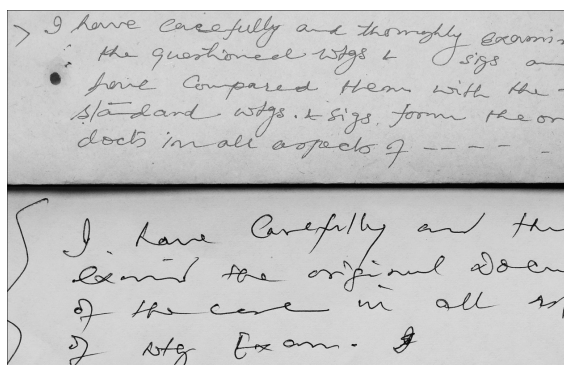 I have carefully and thoroughly examin
the questioned wtgs & sigs an
have Compared them with the
standard wtgs. & sigs. form the or
docts in all aspects of - - - - -
I have Carefully and tho
examind the original Docu
of the case in all
of wtg Exam.